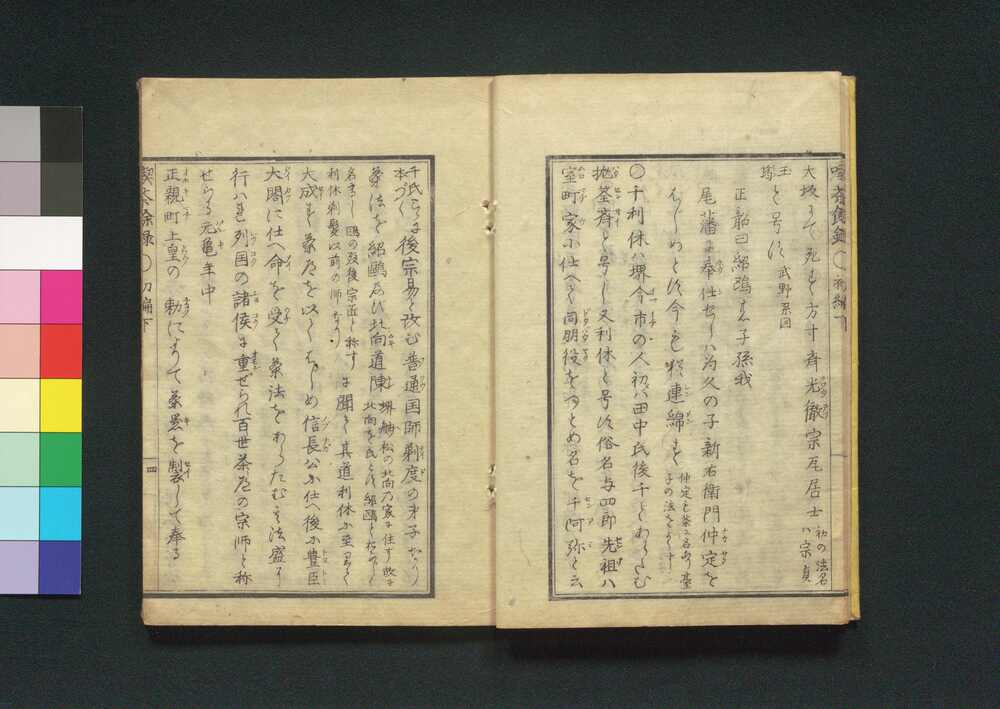 大坂にて死す方寸斉光徹宗瓦居士 初の法名ハ宗貞
玉
と号す 武野系図
正韶曰紹鴎子孫我
尾藩に奉仕せしハ為久の子新右衛門仲定を
はじめとす今も猶連綿す 仲定も茶に名あり臺子の法を
〇千利休ハ堺今市の人初ハ田中氏後千とあらたむ
抛筌斉と号し又利休と号す俗名与四郎先祖ハ
室町家に仕へて同朋役をつとめ名を千阿弥と云
千氏こゝに本づく 後宗易と改む普通国師剃度の弟子なり
茶法を紹鴎及び北向道陳 堺舳松の北向の家に住す故に北向を氏とす紹鴎と
名高し鴎の歿後宗匠と称す利休剃髪以前の師なり に聞て其道利休に至りて
大成す茶道を以てはじめ信長公に仕へ後に豊臣
大閤に仕へ命を受て茶法をあらたむ其法盛に
行ハれ列国の諸侯に重ぜられ百世茶道の宗師と称
せらる元亀年中
正親町上皇の勅によりて茶器を製して奉る
喫茶余録 〇 初編下
四